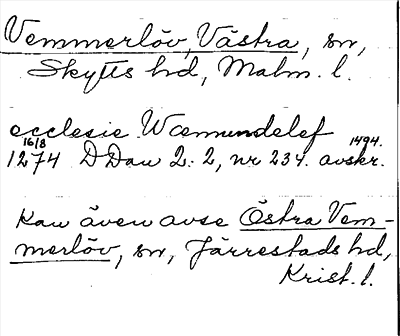 Vemmerlöv, Västra, sn,
Skytts hd, Malm. l.
ecclesie Wæmundelef
16/8 1494.
1274 DDan 2:2, nr 234. avskr.
Kan även avse Östra Vem-
merlöv, sn, Järrestads hd,
Krist. l.